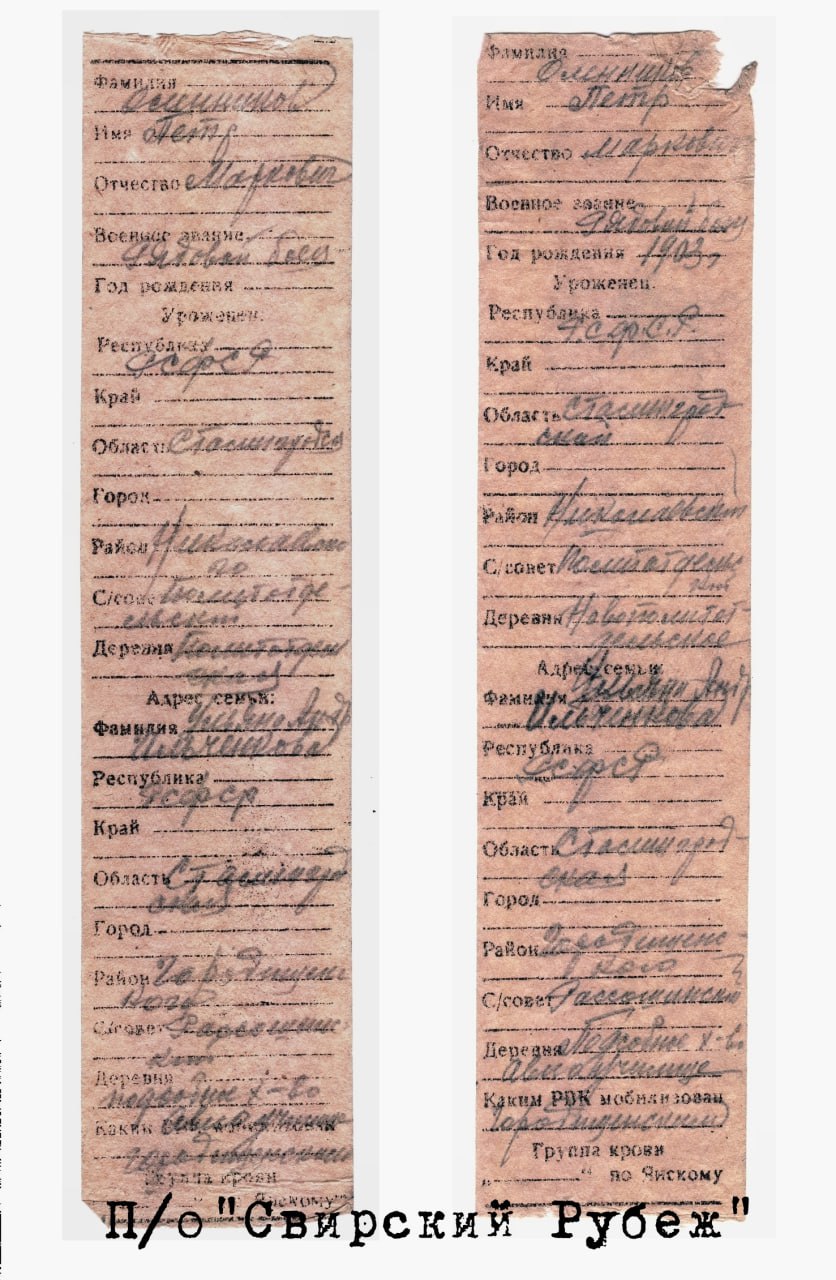 Фамилия
Имя Петр
Отчество Маркович
Военное звание
Рядовой боец
Год рождения
Уроженец:
Республика
РСФСР
Край
Область Сталинградск
Город
Район Николаевско
го
С/совет Политотде-
льский
Деревня
Адрес семьи:
Фамилия Ульяна Андр
Ильченкова
Республика
РСФСР
Край
Область Сталинград
ская
Город
Район Городищенс
кого
С/совет
Деревня
подсобное х-во
авиаучилище
Каким
городищенский
Группа крови
Янскому"
Фамилия
Имя Петр
Отчество Маркович
Военное звание
Рядовой боец
Год рождения 1903,
Уроженец.
Республика
РСФСР.
Край
Область Сталинград
ской
Город
Район Николаевский
С/совет Политотдельс
Деревня Новополитот
дельское
Адрес семьи:
Фамилия Ульяна Андр
Ильченкова
Республика
РСФСР
Край
Область Сталинград-
ская
Город
Район Городищенс-
кого
С/совет Рассошинский
Деревня Подсобное х-во
авиаучилище
Каким РВК мобилизован
Городищенский
Группа крови
„ “ по Янскому
П/о "Свирский Рубеж"